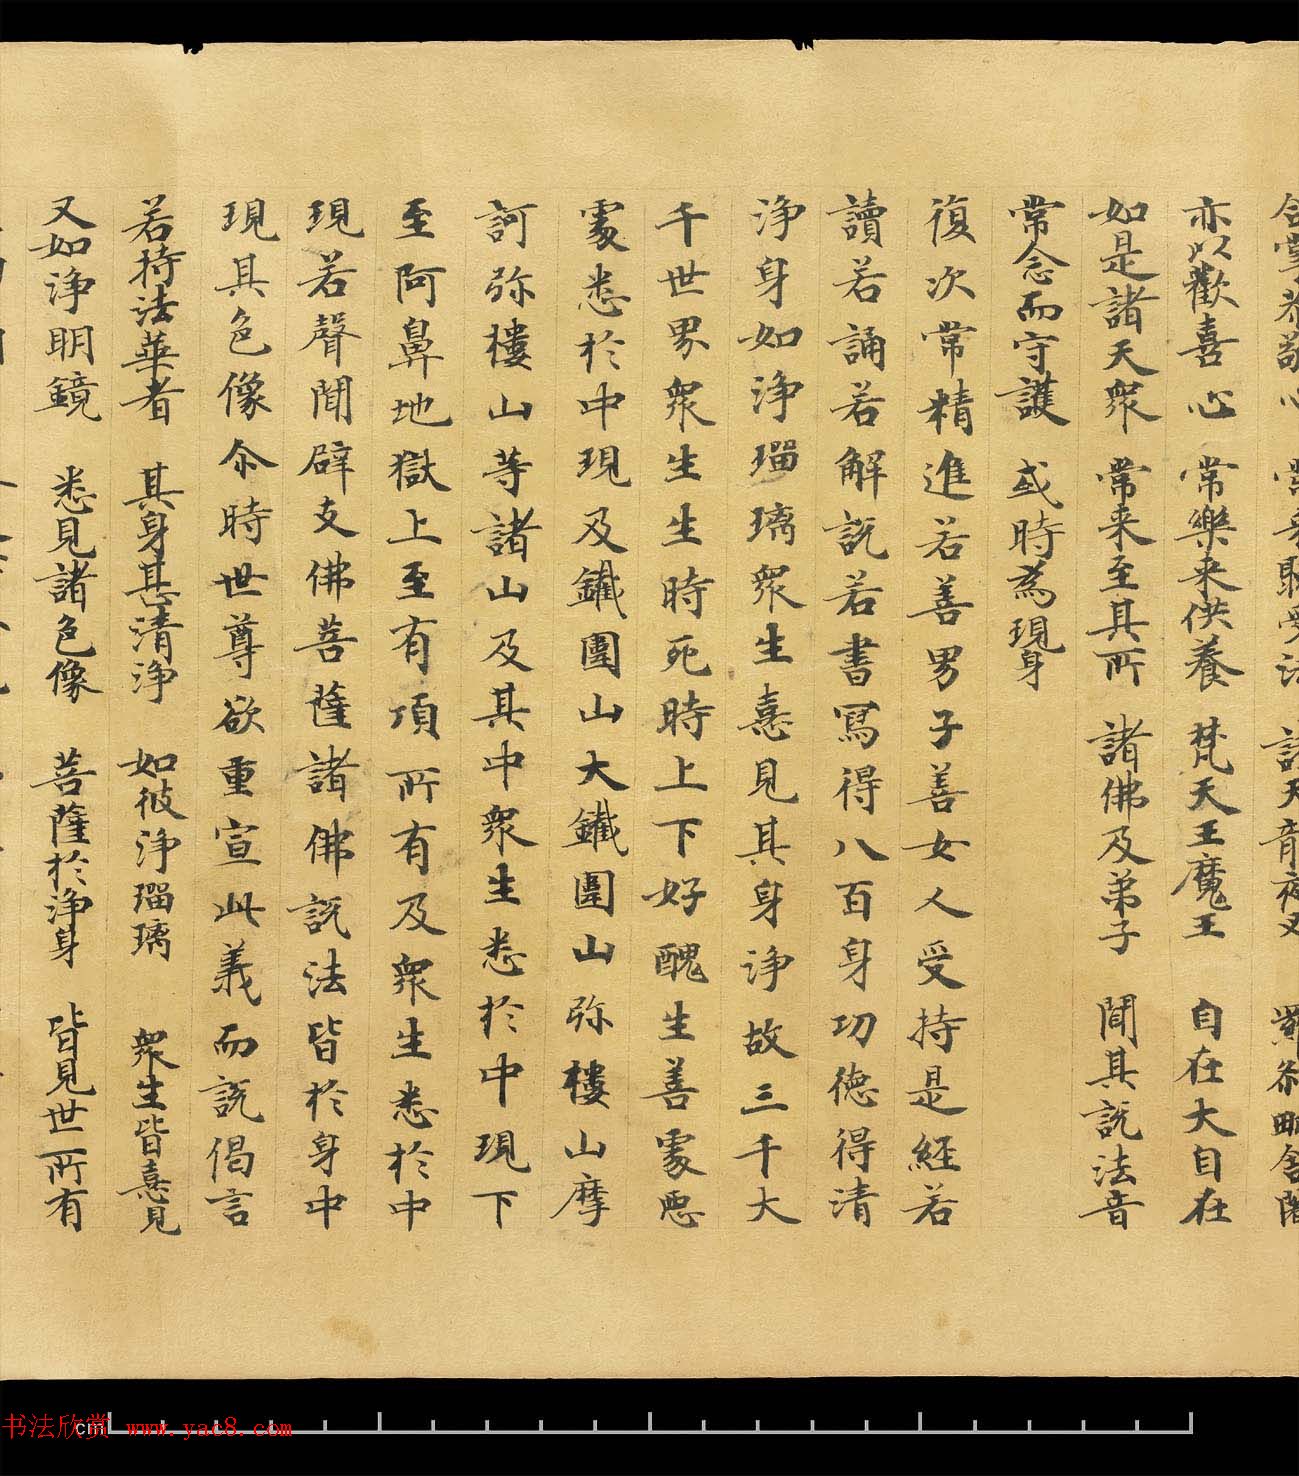 合掌恭敬心　常来聽受法　諸天龍夜叉　羅
亦以歡喜心　常樂来供養　梵天王魔王　自在大自在
如是諸天衆　常来至其所　諸佛及弟子　聞其説法音
常念而守護　或時為現身
復次常精進若善男子善女人受持是經若
讀若誦若解説若書寫得八百身功德得清
淨身如淨瑠璃衆生憙見其身淨故三千大
千世界衆生生時死時上下好醜生善處惡
處悉於中現及鐵圍山大鐵圍山弥樓山摩
訶弥樓山等諸山及其中衆生悉於中現下
至阿鼻地獄上至有頂所有及衆生悉於中
現若聲聞辟支佛菩薩諸佛説法皆於身中
現其色像尒時世尊欲重宣此義而説偈言
若持法華者　其身甚清淨　如彼淨瑠璃　衆生皆憙見
又如淨明鏡　悉見諸色像　菩薩於淨身　皆見世所有
书法欣赏 www.yac8.com
cm